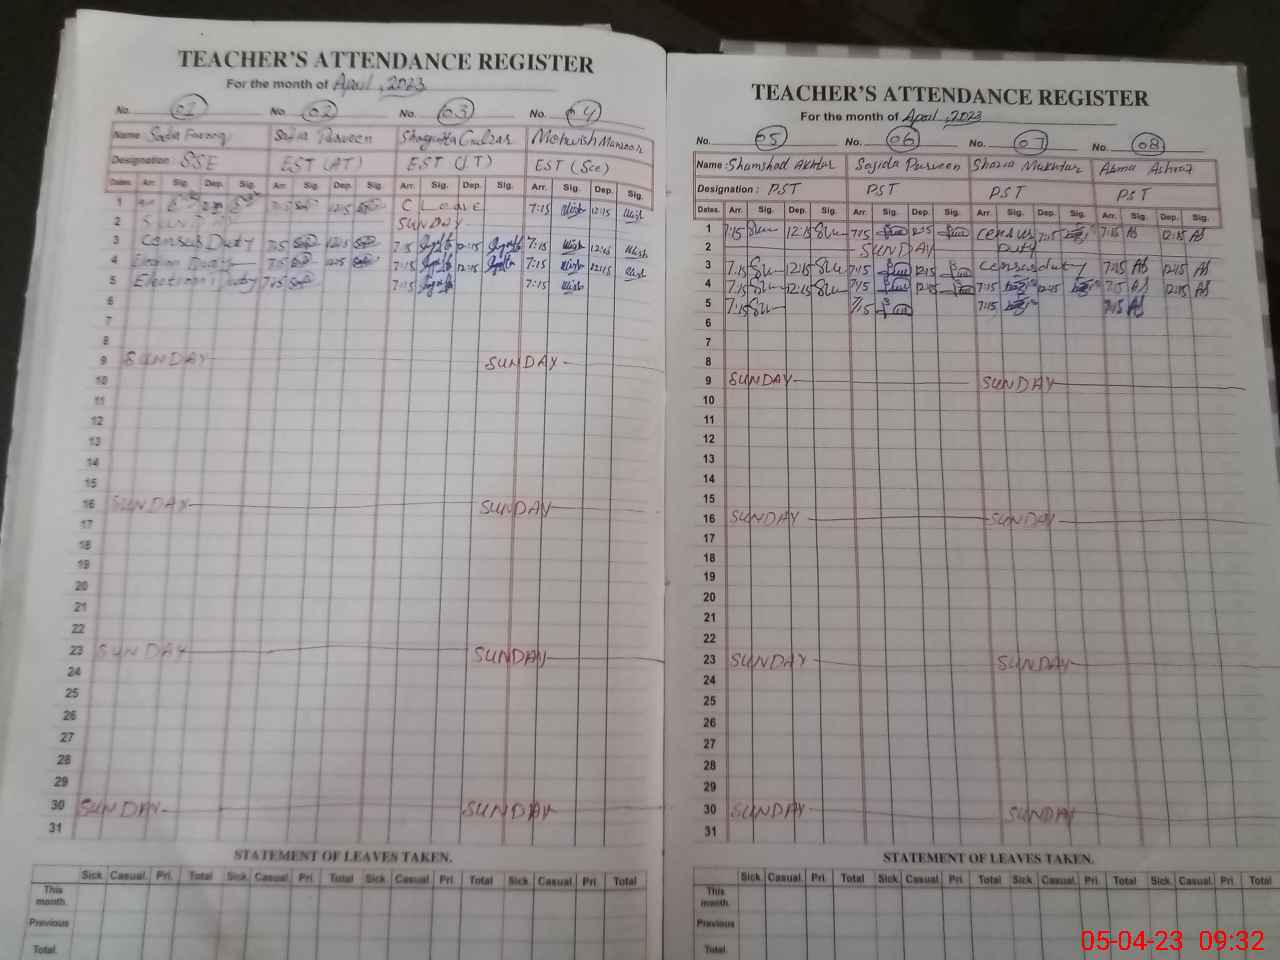 TEACHER'S ATTENDANCE REGISTER
For the month of April, 2023
No. 01 No. 02 No. 03 No. 04
Name Sadia Farooq Safia Parveen Shagufta Gulzar Mehwish Manzoor
Designation: SSE EST (AT) EST (I.T) EST (Sce)
Dates. Arr. Sig. Dep. Sig. Arr. Sig. Dep. Sig. Arr. Sig. Dep. Sig. Arr. Sig. Dep. Sig.
1 7:15 12:15 C Leave 7:15 12:15
2 SUNDAY SUNDAY
3 Census Duty 7:15 12:15 7:15 12:15 7:15 12:15
4 Election Duty 7:15 12:15 7:15 12:15 7:15 12:15
5 Election Duty 7:15 7:15 7:15
6
7
8
9 SUNDAY SUNDAY
10
11
12
13
14
15
16 SUNDAY SUNDAY
17
18
19
20
21
22
23 SUNDAY SUNDAY
24
25
26
27
28
29
30 SUNDAY SUNDAY
31
STATEMENT OF LEAVES TAKEN.
Sick Casual. Pri. Total Sick. Casual. Pri. Total Sick. Casual. Pri. Total Sick. Casual. Pri. Total
This month.
Previous
Total.
TEACHER'S ATTENDANCE REGISTER
For the month of April, 2023
No. 05 No. 06 No. 07 No. 08
Name: Shamshad Akhtar Sajida Parveen Shazia Mukhtar Asma Ashraf
Designation: PST PST PST PST
Dates. Arr. Sig. Dep. Sig. Arr. Sig. Dep. Sig. Arr. Sig. Dep. Sig. Arr. Sig. Dep. Sig.
1 7:15 12:15 7:15 12:15 Census Duty 7:15 7:15 AS 12:15 AS
2 SUNDAY
3 7:15 12:15 7:15 12:15 Census duty 7:15 AS 12:15 AS
4 7:15 12:15 7:15 12:15 7:15 12:15 7:15 AS 12:15 AS
5 7:15 7:15 7:15 7:15 AS
6
7
8
9 SUNDAY SUNDAY
10
11
12
13
14
15
16 SUNDAY SUNDAY
17
18
19
20
21
22
23 SUNDAY SUNDAY
24
25
26
27
28
29
30 SUNDAY SUNDAY
31
STATEMENT OF LEAVES TAKEN.
Sick Casual. Pri. Total Sick. Casual. Pri. Total Sick. Casual. Pri. Total Sick. Casual. Pri. Total
This month.
Previous
Total.
05-04-23 09:32